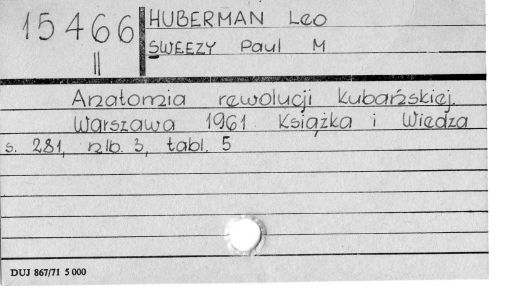 15466 HUBERMAN Leo
II SWEEZY Paul M
Anatomia rewolucji kubańskiej.
Warszawa 1961 Książka i Wiedza
s. 281, nlb. 3, tabl. 5
DUJ 867/71 5 000